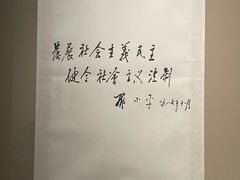 发展社会主義民主
健全社會主义法制
邓小平 一九八七年十一月